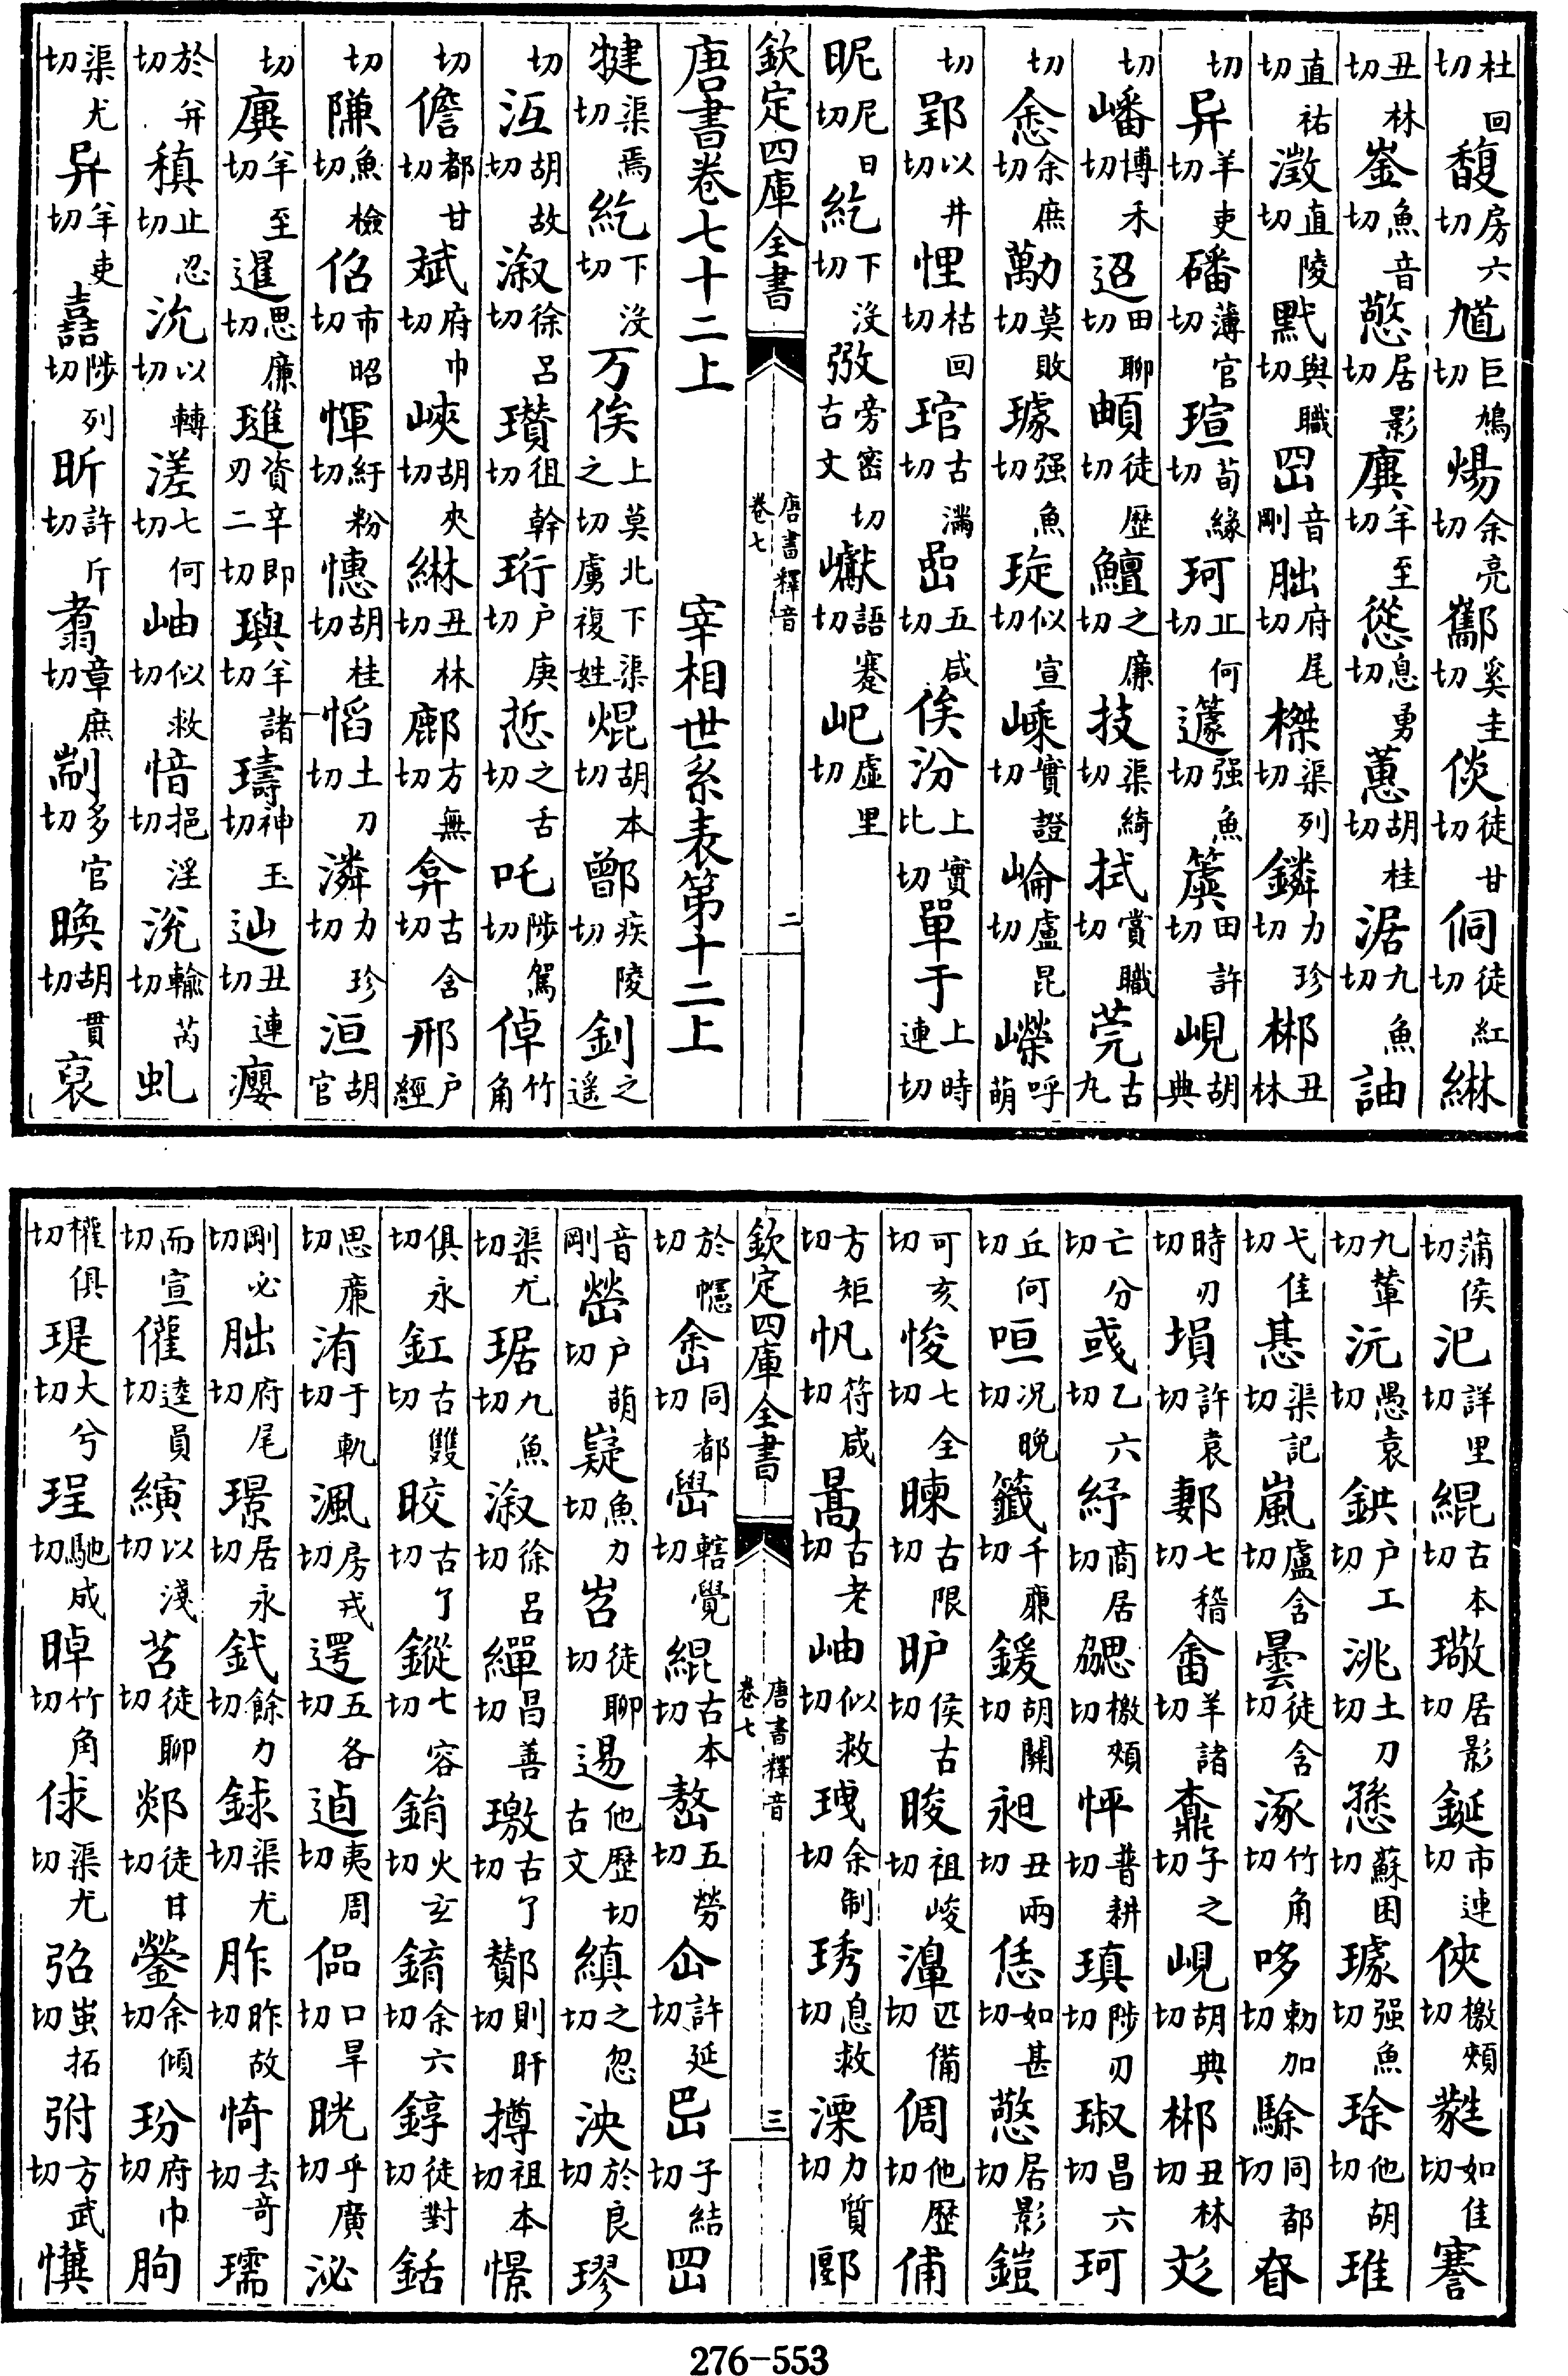 杜回切馥房六切馗巨鳩切煬余亮切酅奚圭切倓徒甘切侗徒紅切綝
丑林切崟魚音切憼居影切廙羊至切慫息勇切蕙胡桂切涺九魚切訷
直祐切澂直陵切黓與職切罡音剛朏府尾切榤渠列切鏻力珍切郴丑林
切异羊吏切磻薄官切瑄荀緣切珂丘何切籧强魚切蒖田許切峴胡典
切嶓博禾切迢田聊切頔徒歷切鱣之廉切技渠綺切拭賞職切莞古九
切悆余庶切勱莫敗切璩强魚切琁似宣切嵊實證切崘盧昆切嶸呼萌
切郢以井切悝枯回切琯古滿切嵒五咸切俟汾上實比切單于上時連切
昵尼日切紇下沒切弻旁密切古文巘語蹇切屺虛里切
欽定四庫全書 唐書釋音卷七 二
唐書卷七十二上 宰相世系表第十二上
犍渠焉切紇下沒切万俟上莫北下渠之切虜複姓焜胡本切鄫疾陵切釗之遥
切沍胡故切漵徐呂切瓚徂幹切珩户庚切悊之舌切吒陟駕切倬竹角
切儋都甘切斌府巾切峽胡夾切綝丑林切鄜方無切弇古含切邢户經
切隒魚檢切佋市昭切惲紆粉切憓胡桂切慆土刀切潾力珍切洹胡官
切廙羊至切暹思廉切璡資辛即刃二切璵羊諸切璹神玉切辿丑連切癭
於幷切稹止忍切沇以轉切溠七何切岫似救切愔挹淫切涗輸芮切虬
渠尤切异羊吏切嚞陟列切昕許斤切翥章庶切剬多官切晙胡貫切裒
蒲侯切汜詳里切緄古本切璥居影切鋋市連切俠檄頰切蕤如佳切謇
九輦切沅愚袁切鉷户工切洮土刀切愻蘇困切璩强魚切琮他胡切琟
弋佳切惎渠記切嵐盧含切曇徒含切涿竹角切哆勅加切駼同都切眘
時刃切塤許袁切郪七稽切畬羊諸切鼒子之切峴胡典切郴丑林切彣
亡分切彧乙六切紓商居切勰檄頰切怦普耕切瑱陟刃切琡昌六切珂
丘何切咺况晚切籤千廉切鍰胡關切昶丑兩切恁如甚切憼居影切鎧
可亥切悛七全切暕古限切昈侯古切晙祖峻切濞匹備切倜他歷切俌
方矩切帆符咸切暠古老切岫似救切玴余制切琇息救切溧力質切郾
欽定四庫全書 唐書釋音卷七 三
於幰切嵞同都切嶨轄覺切緄古本切嶅五勞切仚許延切岊子結切罡
音剛嶜户萌切嶷魚力切岧徒聊切逷他歷切古文縝之忍切泱於良切璆
渠尤切琚九魚切漵徐呂切繟昌善切璬古了切酇則旰切撙祖本切憬
俱永切釭古雙切晈古了切鏦七容切鋗火玄切錥余六切錞徒對切銛
思廉切洧于軌切渢房戎切遌五各切逌夷周切偘口旱切晄乎廣切泌
剛必切朏府尾切璟居永切釴餘力切銶渠尤切胙昨故切㥓去奇切瓀
而宣切㒽逵員切縯以淺切苕徒聊切郯徒甘切鎣余傾切玢府巾切朐
權俱切瑅大兮切珵馳成切晫竹角切俅渠尤切弨蚩招切弣方武切慎
276-553